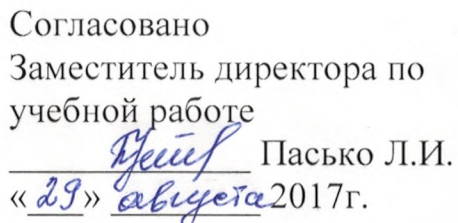 Согласовано
Заместитель директора по
учебной работе
Пасько Л.И.
«29» августа 2017г.